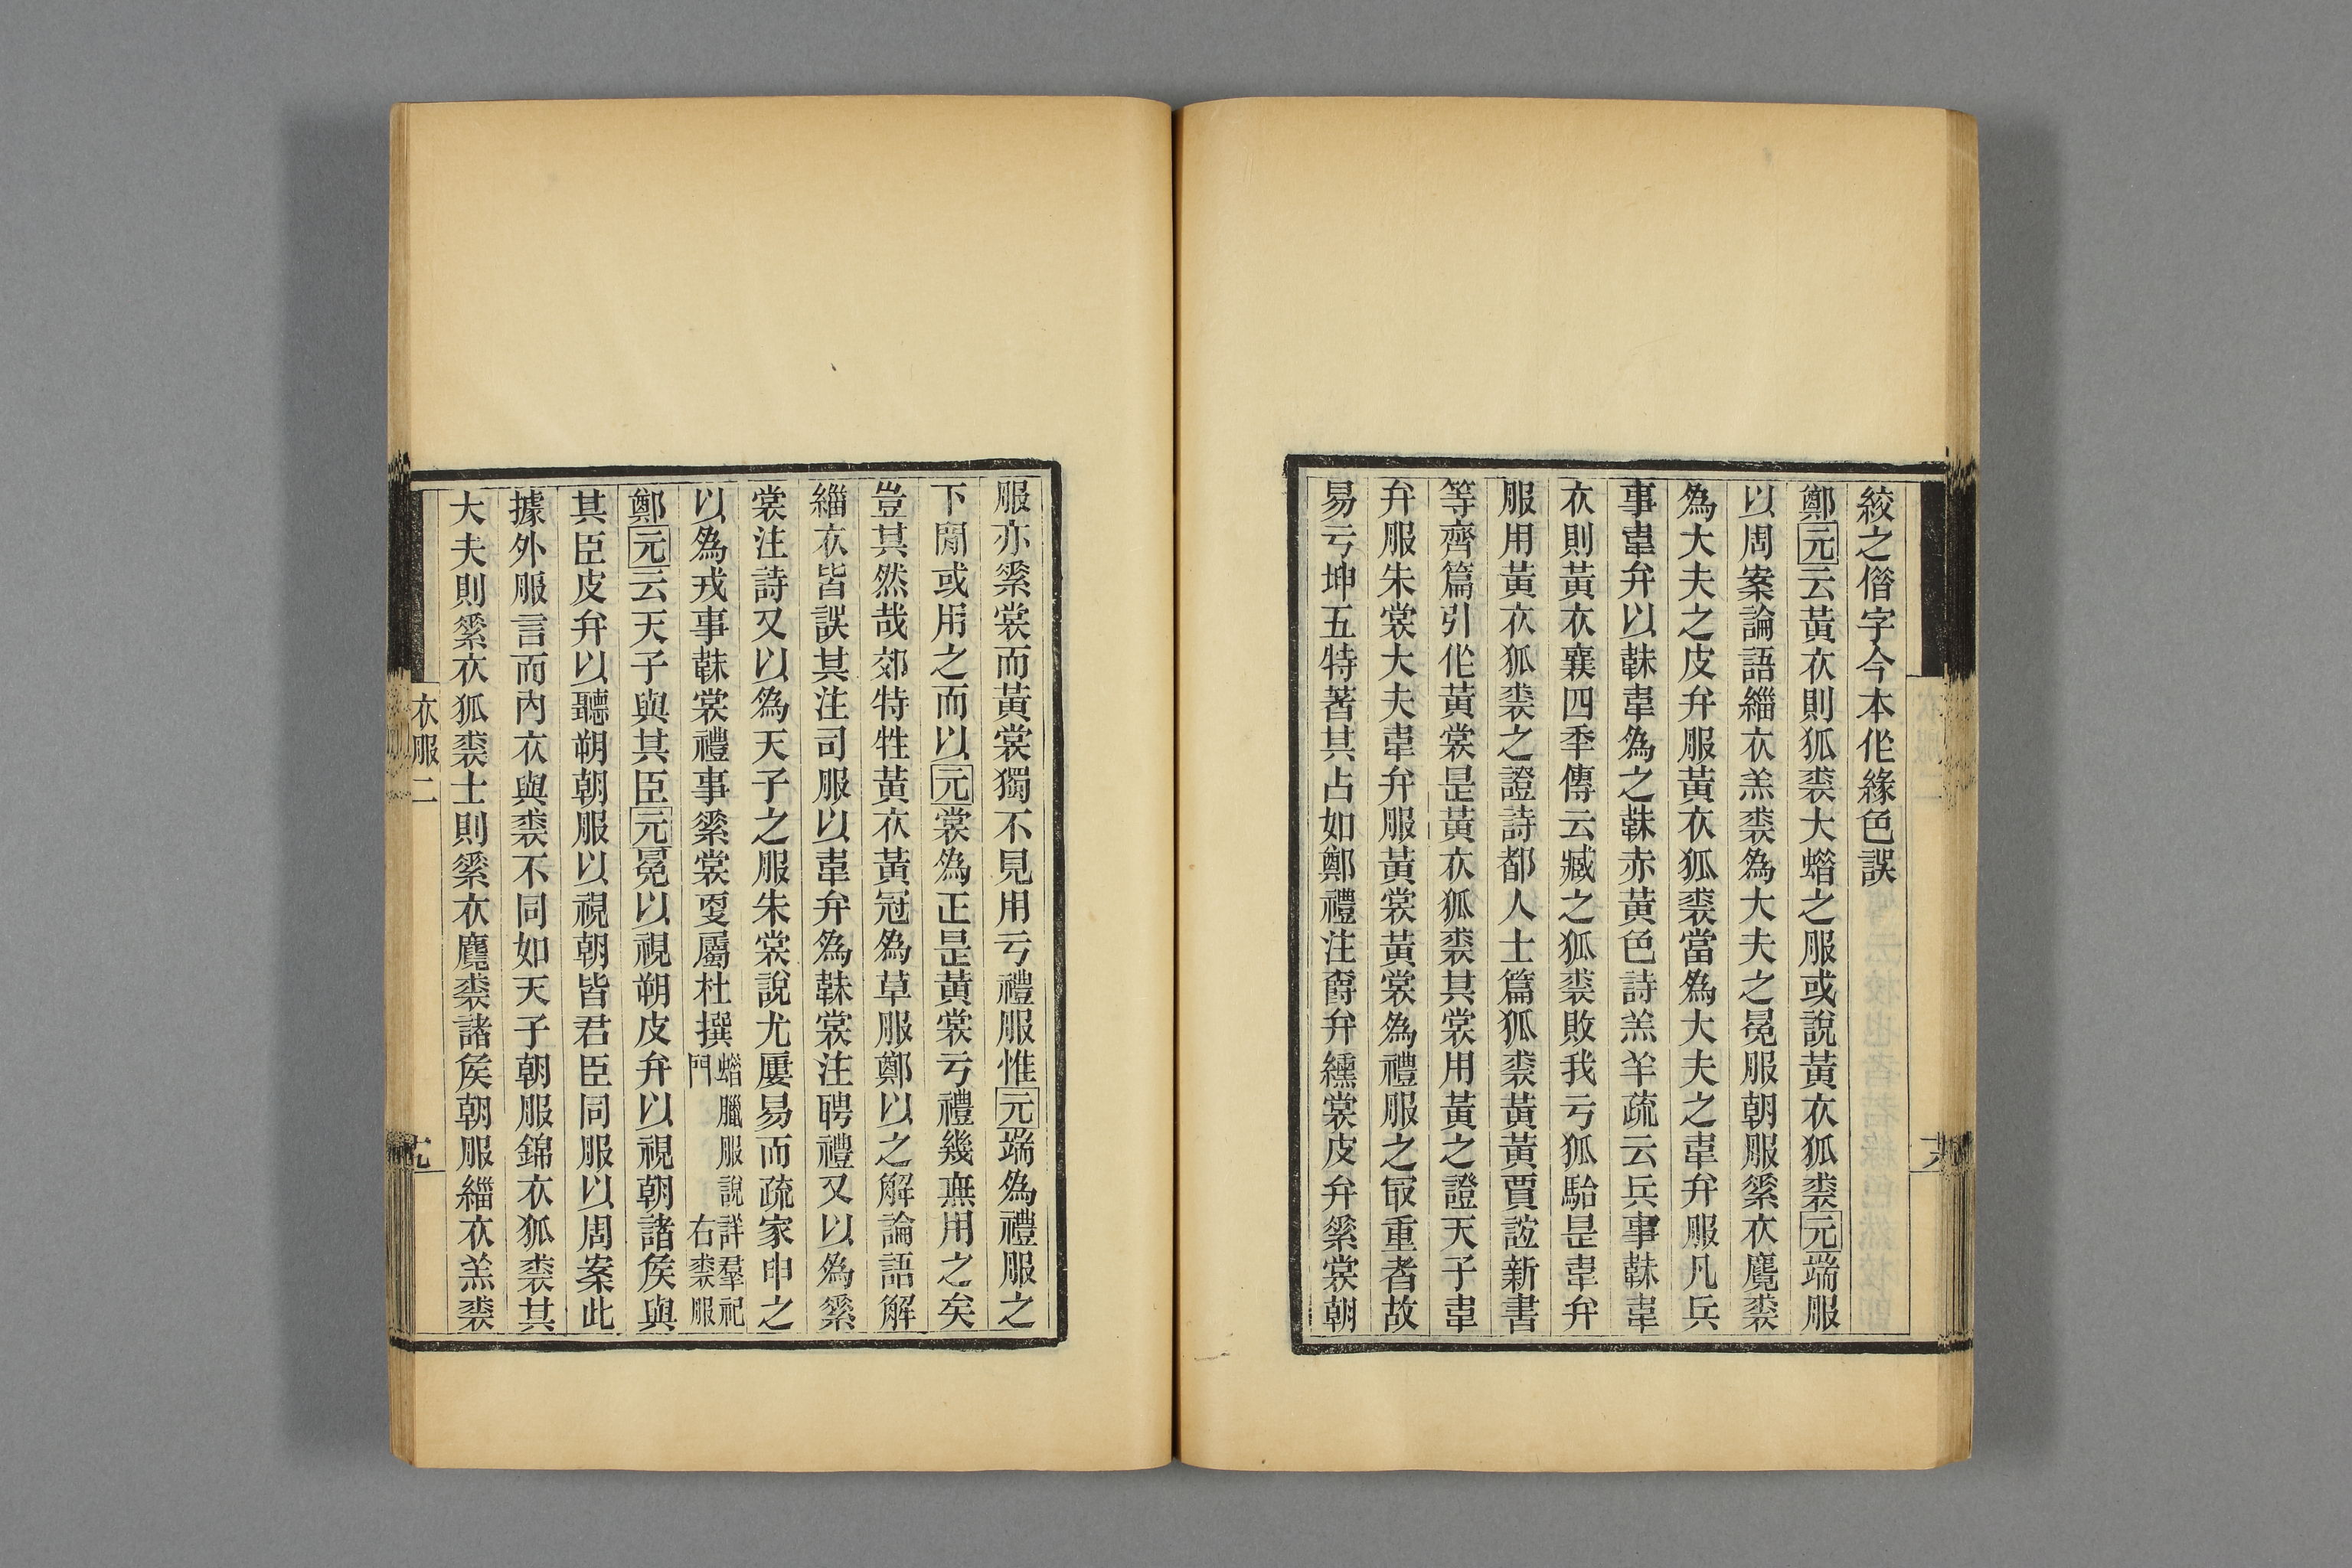 絞之偕字今本作緣色誤
鄭元云黃衣則狐裘大蜡之服或說黃衣狐裘元端服
以周案論語緇衣羔裘爲大夫之冕服朝服素衣麑裘
爲大夫之皮弁服黃衣狐裘當爲大夫之韋弁服凡兵
事韋弁以韎韋爲之韎赤黃色詩羔羊疏云兵事韎韋
衣則黃衣襄四年傳云臧之狐裘敗我亏狐駘是韋弁
服用黃衣狐裘之證詩都人士篇狐裘黃黃賈誼新書
等齊篇引作黃裳是黃衣狐裘其裳用黃之證天子韋
弁服朱裳大夫韋弁服黃裳黃裳爲禮服之冣重者故
易亏坤五特著其占如鄭禮注爵弁纁裳皮弁素裳朝
服亦素裳而黃裳獨不見用亏禮服惟元端爲禮服之
下閒或用之而以元裳爲正是黃裳亏禮幾無用之矣
豈其然哉郊特牲黃衣黃冠爲草服鄭以之解論語解
緇衣皆誤其注司服以韋弁爲韎裳注聘禮又以爲素
裳注詩又以爲天子之服朱裳說尤屢易而疏家申之
以爲戎事韎裳禮事素裳叓屬杜撰蜡臘服說詳羣祀門 右裘服
鄭元云天子與其臣元冕以視朔皮弁以視朝諸侯與
其臣皮弁以聽朔朝服以視朝皆君臣同服以周案此
據外服言而內衣與裘不同如天子朝服錦衣狐裘其
大夫則素衣狐裘士則素衣麑裘諸侯朝服緇衣羔裘
衣服二